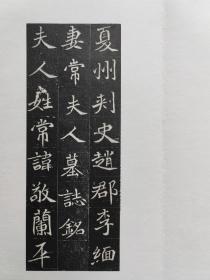 夏州刺史趙郡李緬
妻常夫人墓誌銘
夫人姓常諱敬蘭平